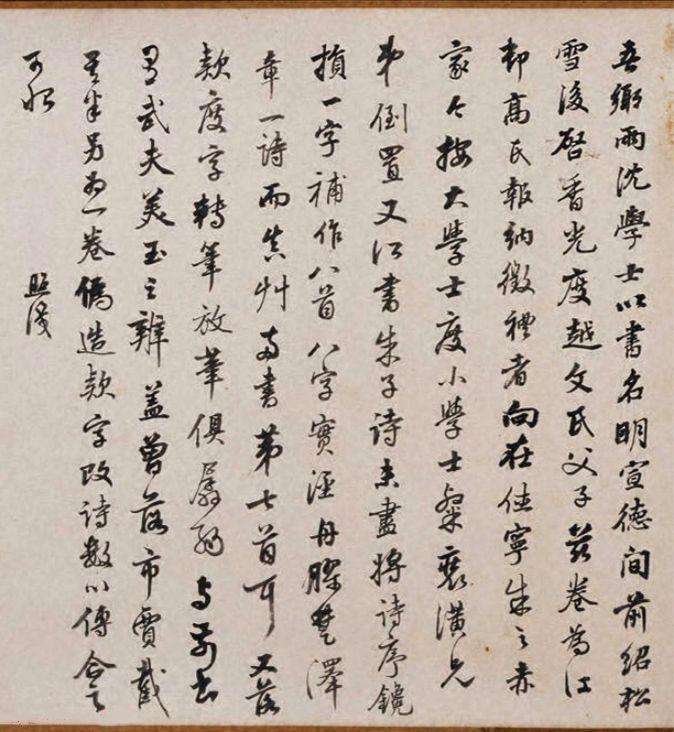 吾鄉兩沈學士以書名明宣德間前紹松
雪後啓香光度越文氏父子茲卷為江
邨高氏報納徵禮者向在住寧朱之赤
家今按大學士度小學士粲裝潢兄
弟倒置又汇書朱子詩未盡將詩序鐫
損一字補作八首八字實溼丹膠楚澤
章一詩而真艸兩書第七首可又落
款度字轉筆放筆俱孱弱與前書
有武夫美玉之辨蓋曾落市賈截
其半另為一卷偽造款字改詩數以傅合之
可惜
照淺